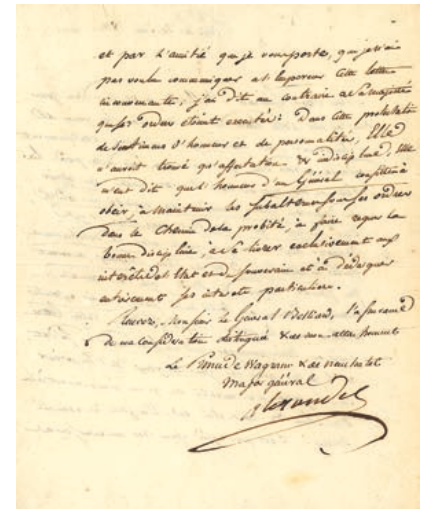 et par l'amitié que je vous porte, que je n'ai
pas voulu communiquer à l'Empereur cette lettre
inconvenante; j'ai dit au contraire à Sa Majesté
que ses ordres étaient exécutés: Dans cette protestation
de sentimens d'honneur et de personnalités, Elle
n'aurait trouvé qu'affectation & indiscipline, Elle
m'eut dit que l'honneur d'un Général consiste à
obéir, à maintenir les subalternes sous ses ordres
dans le chemin de la probité, à faire régner la
bonne discipline, à se livrer exclusivement aux
intérêts de l'Etat et du Souverain et à dédaigner
entièrement ses intérêts particuliers.
Recevez, Monsieur le Général Belliard, l'assurance
de ma considération distinguée & de mon attachement
Le Prince de Wagram & de Neuchatel
Major général
Alexandre